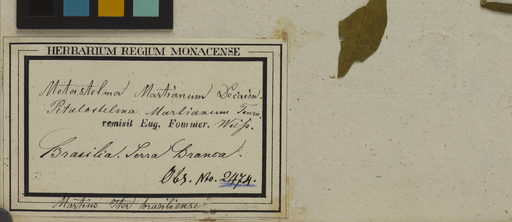 HERBARIUM REGIUM MONACENSE
Metastelma Martianum Decaisn.
Petalostelma Martianum Fourn.
remisit Eug. Fommer.
Brasilia. Serra Branca.
Obs. No. 2474.
Martius Iter brasiliense